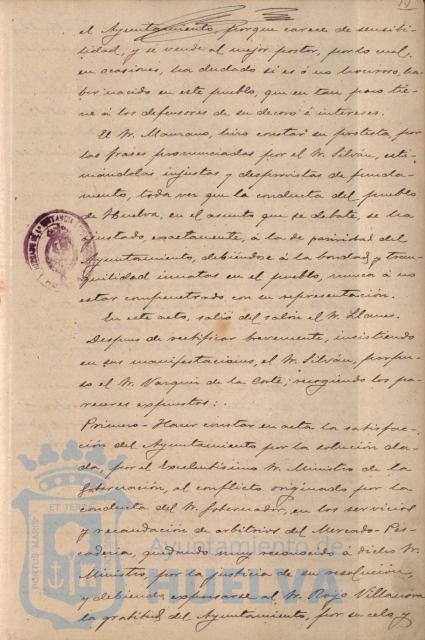 el Ayuntamiento, porque carece de sensibi-
lidad, y se vende al mejor postor, por lo cual,
en ocasiones, ha dudado si es ó no honroso, ha-
ber nacido en este pueblo, que en tan poco tie-
ne á los defensores de su decoro é intereses.
El Sr. Manzano, hizo constar su protesta, por
las frases pronunciadas por el Sr. Silván, esti-
mándolas injustas y desprovistas de funda-
mento, toda vez que la conducta del pueblo
de Huelva, en el asunto que se debate, se ha
ajustado, exactamente, á la de pasividad del
Ayuntamiento, debiéndose á la bondad y tran-
quilidad innatas en el pueblo, nunca á no
estar compenetrado, con su representación.
En este acto, salió del salón el Sr. Llanes.
Despues de rectificar brevemente, insistiendo
en sus manifestaciones, el Sr. Silván, propu-
so el Sr. Vazquez de la Corte, recogiendo los pa-
receres expuestos:
Primero- Hacer constar en acta la satisfac-
ción del Ayuntamiento por la solución da-
da, por el Excelentísimo Sr. Ministro de la
Gobernación, al conflicto originado por la
conducta del Sr. Gobernador, en los servicios
y recaudación de arbitrios del Mercado-Pes-
cadería, quedando muy reconocido á dicho Sr.
Ministro, por la justicia de su resolución,
y debiendo expresarse al Sr. Rojo Villanova
la gratitud del Ayuntamiento, por su celo, y
PORTUS MARIS ET TERRAE
Ayuntamiento de
HUELVA